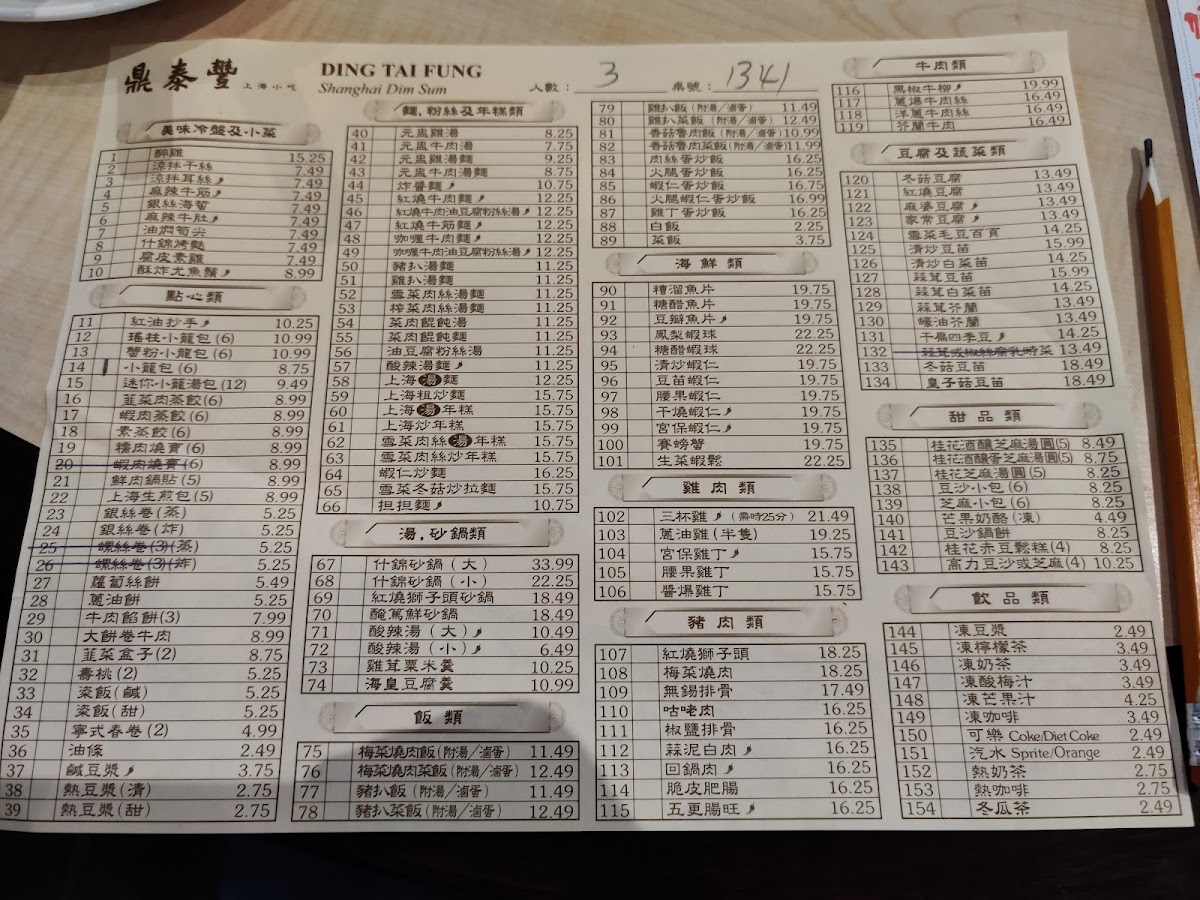 鼎泰豐 上海小吃
DING TAI FUNG
Shanghai Dim Sum
人數：3 桌號：1341
美味冷盤及小菜
1 醉雞 15.25
2 涼拌干絲 7.49
3 涼拌耳絲 7.49
4 麻辣牛筋 7.49
5 銀絲海蜇 7.49
6 麻辣牛肚 7.49
7 油燜筍尖 7.49
8 什錦烤麩 7.49
9 腐皮素雞 7.49
10 酥炸尤魚鬚 8.99
點心類
11 紅油抄手 10.25
12 瑤柱小籠包(6) 10.99
13 蟹粉小籠包(6) 10.99
14 小籠包(6) 8.75
15 迷你小龍湯包(12) 9.49
16 韮菜肉蒸餃(6) 8.99
17 蝦肉蒸餃(6) 8.99
18 素蒸餃(6) 8.99
19 糯肉燒賣(6) 8.99
20 蝦肉燒賣(6) 8.99
21 鮮肉鍋貼(5) 8.99
22 上海生煎包(5) 8.99
23 銀絲卷(蒸) 5.25
24 銀絲卷(炸) 5.25
25 螺絲卷(3)(蒸) 5.25
26 螺絲卷(3)(炸) 5.25
27 蘿蔔絲餅 5.49
28 蔥油餅 5.25
29 牛肉餡餅(3) 7.99
30 大餅卷牛肉 8.99
31 韮菜盒子(2) 8.75
32 壽桃(2) 5.25
33 粢飯(鹹) 5.25
34 粢飯(甜) 5.25
35 寧式春卷(2) 4.99
36 油條 2.49
37 鹹豆漿 3.75
38 熱豆漿(清) 2.75
39 熱豆漿(甜) 2.75
麵,粉絲及年糕類
40 元盅雞湯 8.25
41 元盅牛肉湯 7.75
42 元盅雞湯麵 9.25
43 元盅牛肉湯麵 8.75
44 炸醬麵 10.75
45 紅燒牛肉麵 12.25
46 紅燒牛肉油豆腐粉絲湯 12.25
47 紅燒牛筋麵 12.25
48 咖喱牛肉麵 12.25
49 咖喱牛肉油豆腐粉絲湯 12.25
50 豬扒湯麵 11.25
51 雞扒湯麵 11.25
52 雪菜肉絲湯麵 11.25
53 榨菜肉絲湯麵 11.25
54 菜肉餛飩湯 11.25
55 菜肉餛飩麵 11.25
56 油豆腐粉絲湯 11.25
57 酸辣湯麵 11.25
58 上海湯麵 12.25
59 上海粗炒麵 15.75
60 上海湯年糕 15.75
61 上海炒年糕 15.75
62 雪菜肉絲湯年糕 15.75
63 雪菜肉絲炒年糕 15.75
64 蝦仁炒麵 16.25
65 雪菜冬菇炒拉麵 15.75
66 担担麵 10.75
湯,砂鍋類
67 什錦砂鍋(大) 33.99
68 什錦砂鍋(小) 22.25
69 紅燒獅子頭砂鍋 18.49
70 醃篤鮮砂鍋 18.49
71 酸辣湯(大) 10.49
72 酸辣湯(小) 6.49
73 雞茸粟米羹 10.25
74 海皇豆腐羹 10.99
飯類
75 梅菜燒肉飯(附湯/滷蛋) 11.49
76 梅菜燒肉菜飯(附湯/滷蛋) 12.49
77 豬扒飯(附湯/滷蛋) 11.49
78 豬扒菜飯(附湯/滷蛋) 12.49
79 雞扒飯(附湯/滷蛋) 11.49
80 雞扒菜飯(附湯/滷蛋) 12.49
81 香菇魯肉飯(附湯/滷蛋) 10.99
82 香菇魯肉菜飯(附湯/滷蛋) 11.99
83 肉絲蛋炒飯 16.25
84 火腿蛋炒飯 16.25
85 蝦仁蛋炒飯 16.75
86 火腿蝦仁蛋炒飯 16.99
87 雞丁蛋炒飯 16.25
88 白飯 2.25
89 菜飯 3.75
海鮮類
90 糟溜魚片 19.75
91 糖醋魚片 19.75
92 豆瓣魚片 19.75
93 鳳梨蝦球 22.25
94 糖醋蝦球 22.25
95 清炒蝦仁 19.75
96 豆苗蝦仁 19.75
97 腰果蝦仁 19.75
98 干燒蝦仁 19.75
99 宮保蝦仁 19.75
100 賽螃蟹 19.75
101 生菜蝦鬆 22.25
雞肉類
102 三杯雞(需時25分) 21.49
103 蔥油雞(半隻) 19.25
104 宮保雞丁 15.75
105 腰果雞丁 15.75
106 醬爆雞丁 15.75
豬肉類
107 紅燒獅子頭 18.25
108 梅菜燒肉 18.25
109 無錫排骨 17.49
110 咕咾肉 16.25
111 椒鹽排骨 16.25
112 蒜泥白肉 16.25
113 回鍋肉 16.25
114 脆皮肥腸 16.25
115 五更腸旺 16.25
牛肉類
116 黑椒牛柳 19.99
117 蔥爆牛肉絲 16.49
118 洋蔥牛肉絲 16.49
119 芥蘭牛肉 16.49
豆腐及蔬菜類
120 冬菇豆腐 13.49
121 紅燒豆腐 13.49
122 麻婆豆腐 13.49
123 家常豆腐 13.49
124 雪菜毛豆百頁 14.25
125 清炒豆苗 15.99
126 清炒白菜苗 14.25
127 蒜茸豆苗 15.99
128 蒜茸白菜苗 14.25
129 蒜茸芥蘭 14.25
130 蠔油芥蘭 14.25
131 干扁四季豆 14.25
132 蒜茸或椒絲腐乳時菜 13.49
133 冬菇豆苗 18.49
134 皇子菇豆苗 18.49
甜品類
135 桂花酒釀芝麻湯圓(5) 8.49
136 桂花酒釀蛋芝麻湯圓(5) 8.75
137 桂花芝麻湯圓(5) 8.25
138 豆沙小包(6) 8.25
139 芝麻小包(6) 8.25
140 芒果奶酪(凍) 4.49
141 豆沙鍋餅 8.25
142 桂花赤豆鬆糕(4) 8.25
143 高力豆沙或芝麻(4) 10.25
飲品類
144 凍豆漿 2.49
145 凍檸檬茶 3.49
146 凍奶茶 3.49
147 凍酸梅汁 3.49
148 凍芒果汁 4.25
149 凍咖啡 3.49
150 可樂 Coke/Diet Coke 2.49
151 汽水 Sprite/Orange 2.49
152 熱奶茶 2.75
153 熱咖啡 2.75
154 冬瓜茶 2.49